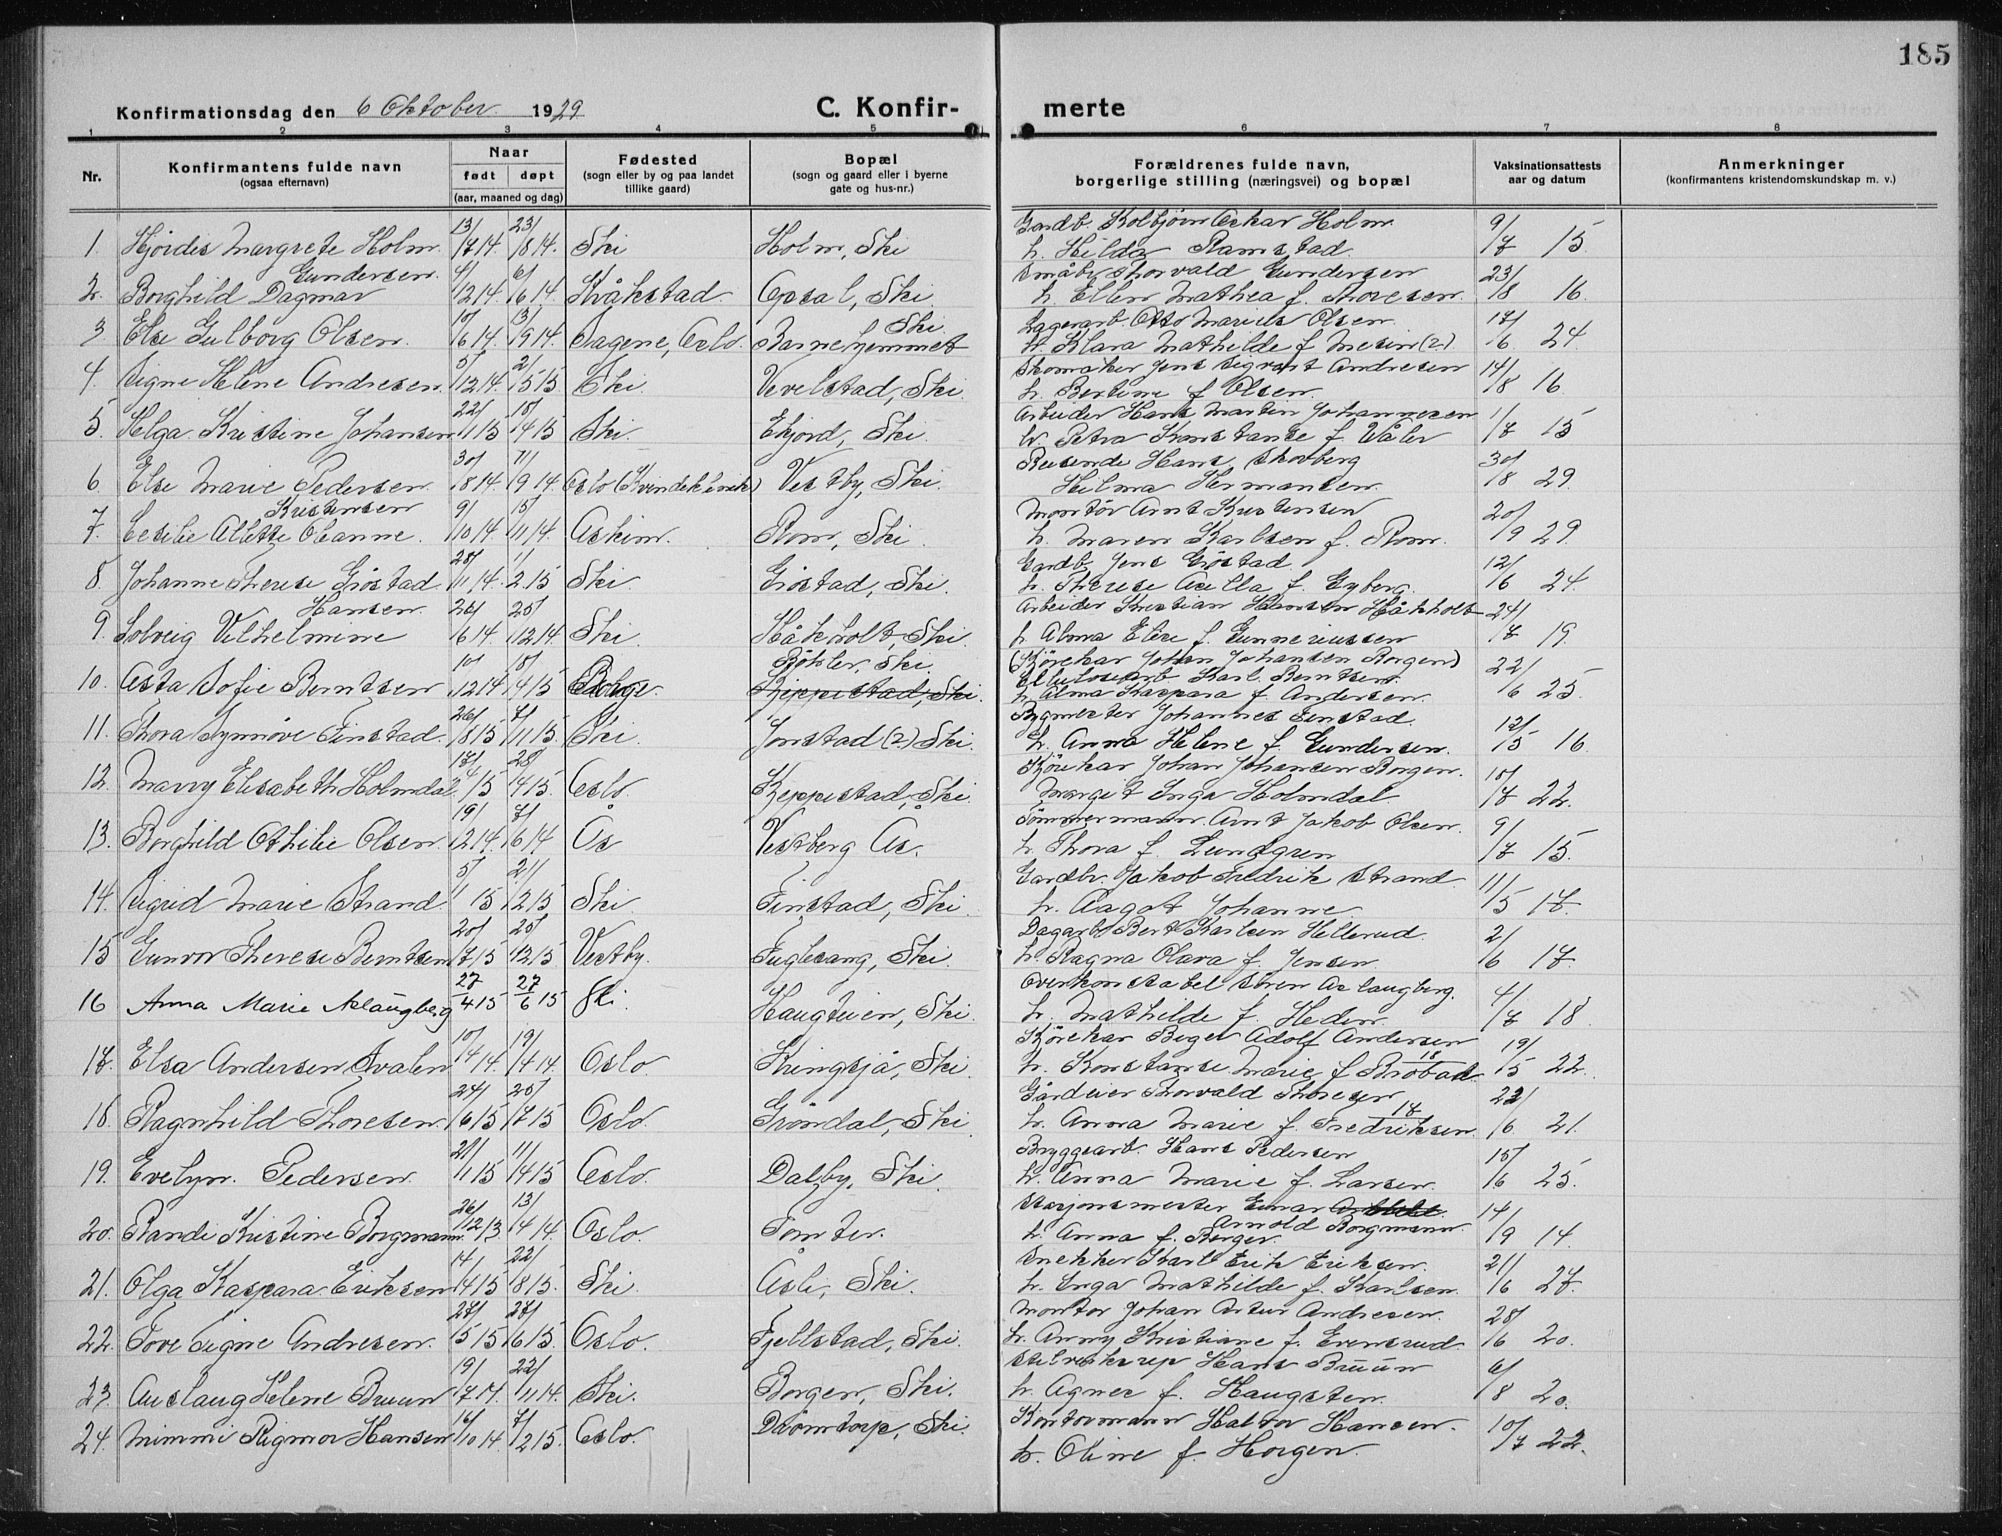 185
Konfirmationsdag den 6 Oktober 1929
C. Konfir- merte
1 2 3 4 5 6 7 8
Nr.
Konfirmantens fulde navn
(ogsaa efternavn)
Naar
født døpt
(aar, maaned og dag)
Fødested
(sogn eller by og paa landet
tillike gaard)
Bopæl
(sogn og gaard eller i byerne
gate og hus-nr.)
Forældrenes fulde navn,
borgerlige stilling (næringsvei) og bopæl
Vaksinationsattests
aar og datum
Anmerkninger
(konfirmantens kristendomskundskap m. v.)
1. Hjördis Margrete Holm 13/7 14. 23/8 14. Ski Holm, Ski Gardb. Kolbjörn Oskar Holm 9/7 15
h. Hilda Ramstad
2. Borghild Dagmar Gundersen 4/12 14. 6/6 14. Kråkstad Opsal, Ski Småbr. Thorvald Gundersen 23/8 16.
h. Ellen Mathea f. Thoresen.
3 Else Gulborg Olsen. 10/6 14. 13/9 14. Sagene, Oslo. Barnehjemmet Ski Lagerarb. Otto Marius Olsen 17/6 24
h. Klara Mathilde f. (2)
4. Signe Helene Andresen 5/12 14. 2/5 15 Ski. Vevelstad, Ski Skomaker Jens Sigvart Andresen 14/8 16
h. Bertine f. Olsen.
5. Helga Kristine Johansen 22/1 15 18/4 15 Ski. Ekjord, Ski. Arbeider Hans Martin Johannesen 1/7 15
h. Petra Konstanse f. Våler
6. Else Marie Pedersen 30/8 14. 11/9 14. Oslo (Kvindeklinik) Vestby, Ski. Reisende Hans Skovberg 30/8 29.
Hilma Hermansen.
7. Cesilie Alette Oleanne Kristensen 9/10 14. 15/11 14. Askim. Rom, Ski. Montör Arnt Kristensen 20/9 29.
h. Maren Karlsen f. Rom.
8. Johanne Therese Gröstad 28/11 14. 11/2 15 Ski. Gröstad, Ski. Gardb. Jens Gröstad 12/6 24.
h. Therese f. Gyberg.
9. Solveig Vilhelmine Hansen 26/6 14. 25/12 14. Ski. Håkholt, Ski Arbeider Kristian Hansen Håkholt 24/7 19.
h. Alma Elise f. Gunneriussen
10. Asta Sofie Berntsen 10/12 14 18/4 15 Ski. Keppestad, Ski (Körekar Johan Johansen Borgen) 22/6 25.
Karl Berntsen
h. Alma Kaspara f. Andersen.
11. Thora Synnöve Finstad 26/8 15 7/11 15. Ski. Jonstad (2) Ski. Bygmester Johannes Finstad. 12/5 16
h. Anna Helene f. Gundersen.
12. Marry Elisabeth Holmdal 17/4 15 28/4 15. Oslo. Keppestad, Ski. Körekar Johan Johansen Borgen. 18/7 22.
Margit Inga Holmdal
13. Borghild Othilie Olsen. 19/12 14. 7/6 14 Ås Vestberg Ås. Tömmermann Arnt Jakob Olsen. 9/7 15.
h. Thora f. Lundgren
14. Sigrid Marie Strand 5/1 15 21/2 15 Ski. Finstad, Ski. Gardbr. Jakob Fredrik Strand 11/5 17.
h. Aagot Johanne
15 Gunvor Therese Berntsen 20/7 15 25/12 15 Vestby. Fuglesang, Ski. Dagarb. Bert Karlsen Hellerud. 2/6 17
h. Ragna Olava f. Jensen
16 Anna Marie Aslaugberg 27/4 15 27/6 15 Ski. Haugtuen, Ski. Overkonstabel Sören Aslaugberg. 4/7 18.
h. Mathilde f. Heden.
17. Elsa Andersen Svalen 10/4 14. 19/4 14. Oslo. Kringsjå, Ski. Körekar Birger Adolf Andersen 19/5 22.
h. Konstanse Marie f. 18
18. Ragnhild Thoresen. 24/6 15 25/7 15 Oslo. Gröndal, Ski. Gårdeier Thorvald Thoresen 22/6 21.
h. Anna Marie f. Fredriksen 17
19. Evelyn Pedersen. 21/1 15 11/4 15 Oslo. Dalby, Ski. Bryggearb. Hans Pedersen 15/6 25.
h. Anna Marie f. Larsen.
20. Randi Kristine Borgmann 26/12 13 13/4 14. Oslo. Tomter. Stasjonsmester Einar Arnold Borgmann 14/9 14.
h. Anna f. Berger.
21. Olga Kaspara Eriksen 14/4 15 22/8 15. Ski. Åsli, Ski. Snekker Karl Erik Eriksen. 21/6 27.
h. Inga Mathilde f. Karlsen.
22. Tove Signe Andresen. 27/5 15 27/6 15. Oslo. Fjellstad, Ski. Montör Johan Artur Andresen. 28/6 20.
h. Anny Kristiane f. Evensrud
23. Auslaug Helene Bruun 19/7 14. 22/11 14. Ski. Borgen, Ski. Hans Bruun 6/8 20.
h. Agnes f. Haugsten.
24. Mimmi Rigmor Hansen 16/10 14. 7/2 15. Oslo. Drömtorp, Ski. Kontormann Halvor Hansen. 10/7 22.
h. Oline f. Horgen.